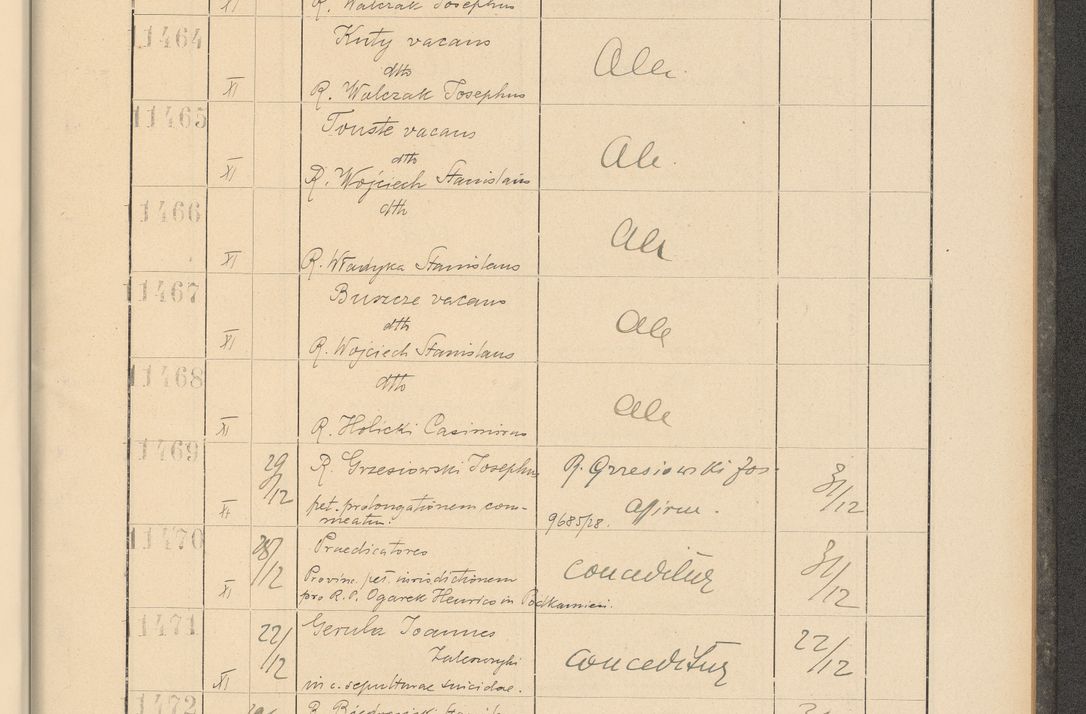 XI R. Walczak Josephus
11464
Kuty vacans
dtto
XI R. Walczak Josephus
Ale
11465
Touste vacans
dtto
XI R. Wojciech Stanislaus
Ale.
11466
dtto
XI R. Władyka Stanislaus
Ale
11467
Buszcze vacans
dtto
XI R. Wojciech Stanislaus
Ale
11468
dtto
XI R. Holicki Casimirus
Ale
11469
29/12 R. Grzesiowski Josephus
pet. prolongationem com-
meatus.
R. Grzesiowski Jos-
affirm.
9685/28.
31/12
11470
Praedicatores
XI Provinc. pet. iurisdictionem
pro R. P. Ogarek Henrico in Podkamień.
conceditur
31/12
11471
22/12 Gerula Joannes
XI in c. sepulturae suicidae.
conceditur
22/12
11472